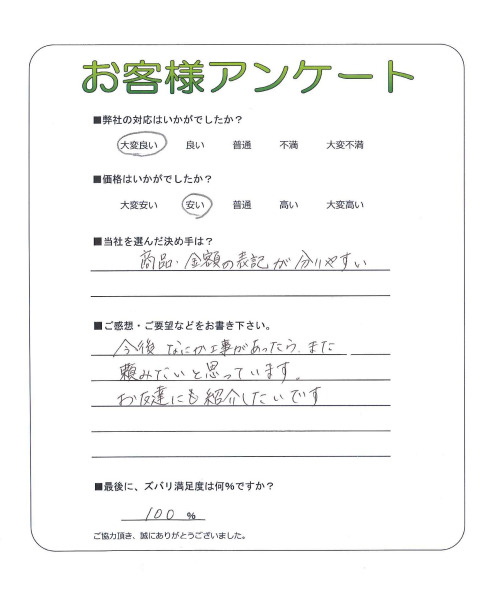 お客様アンケート
■弊社の対応はいかがでしたか？
大変良い 良い 普通 不満 大変不満
■価格はいかがでしたか？
大変安い 安い 普通 高い 大変高い
■当社を選んだ決め手は？
商品・金額の表記が分りやすい
■ご感想・ご要望などをお書き下さい。
今後なにか工事があったら、また
頼みたいと思っています。
お友達にも紹介したいです
■最後に、ズバリ満足度は何%ですか？
100 %
ご協力頂き、誠にありがとうございました。